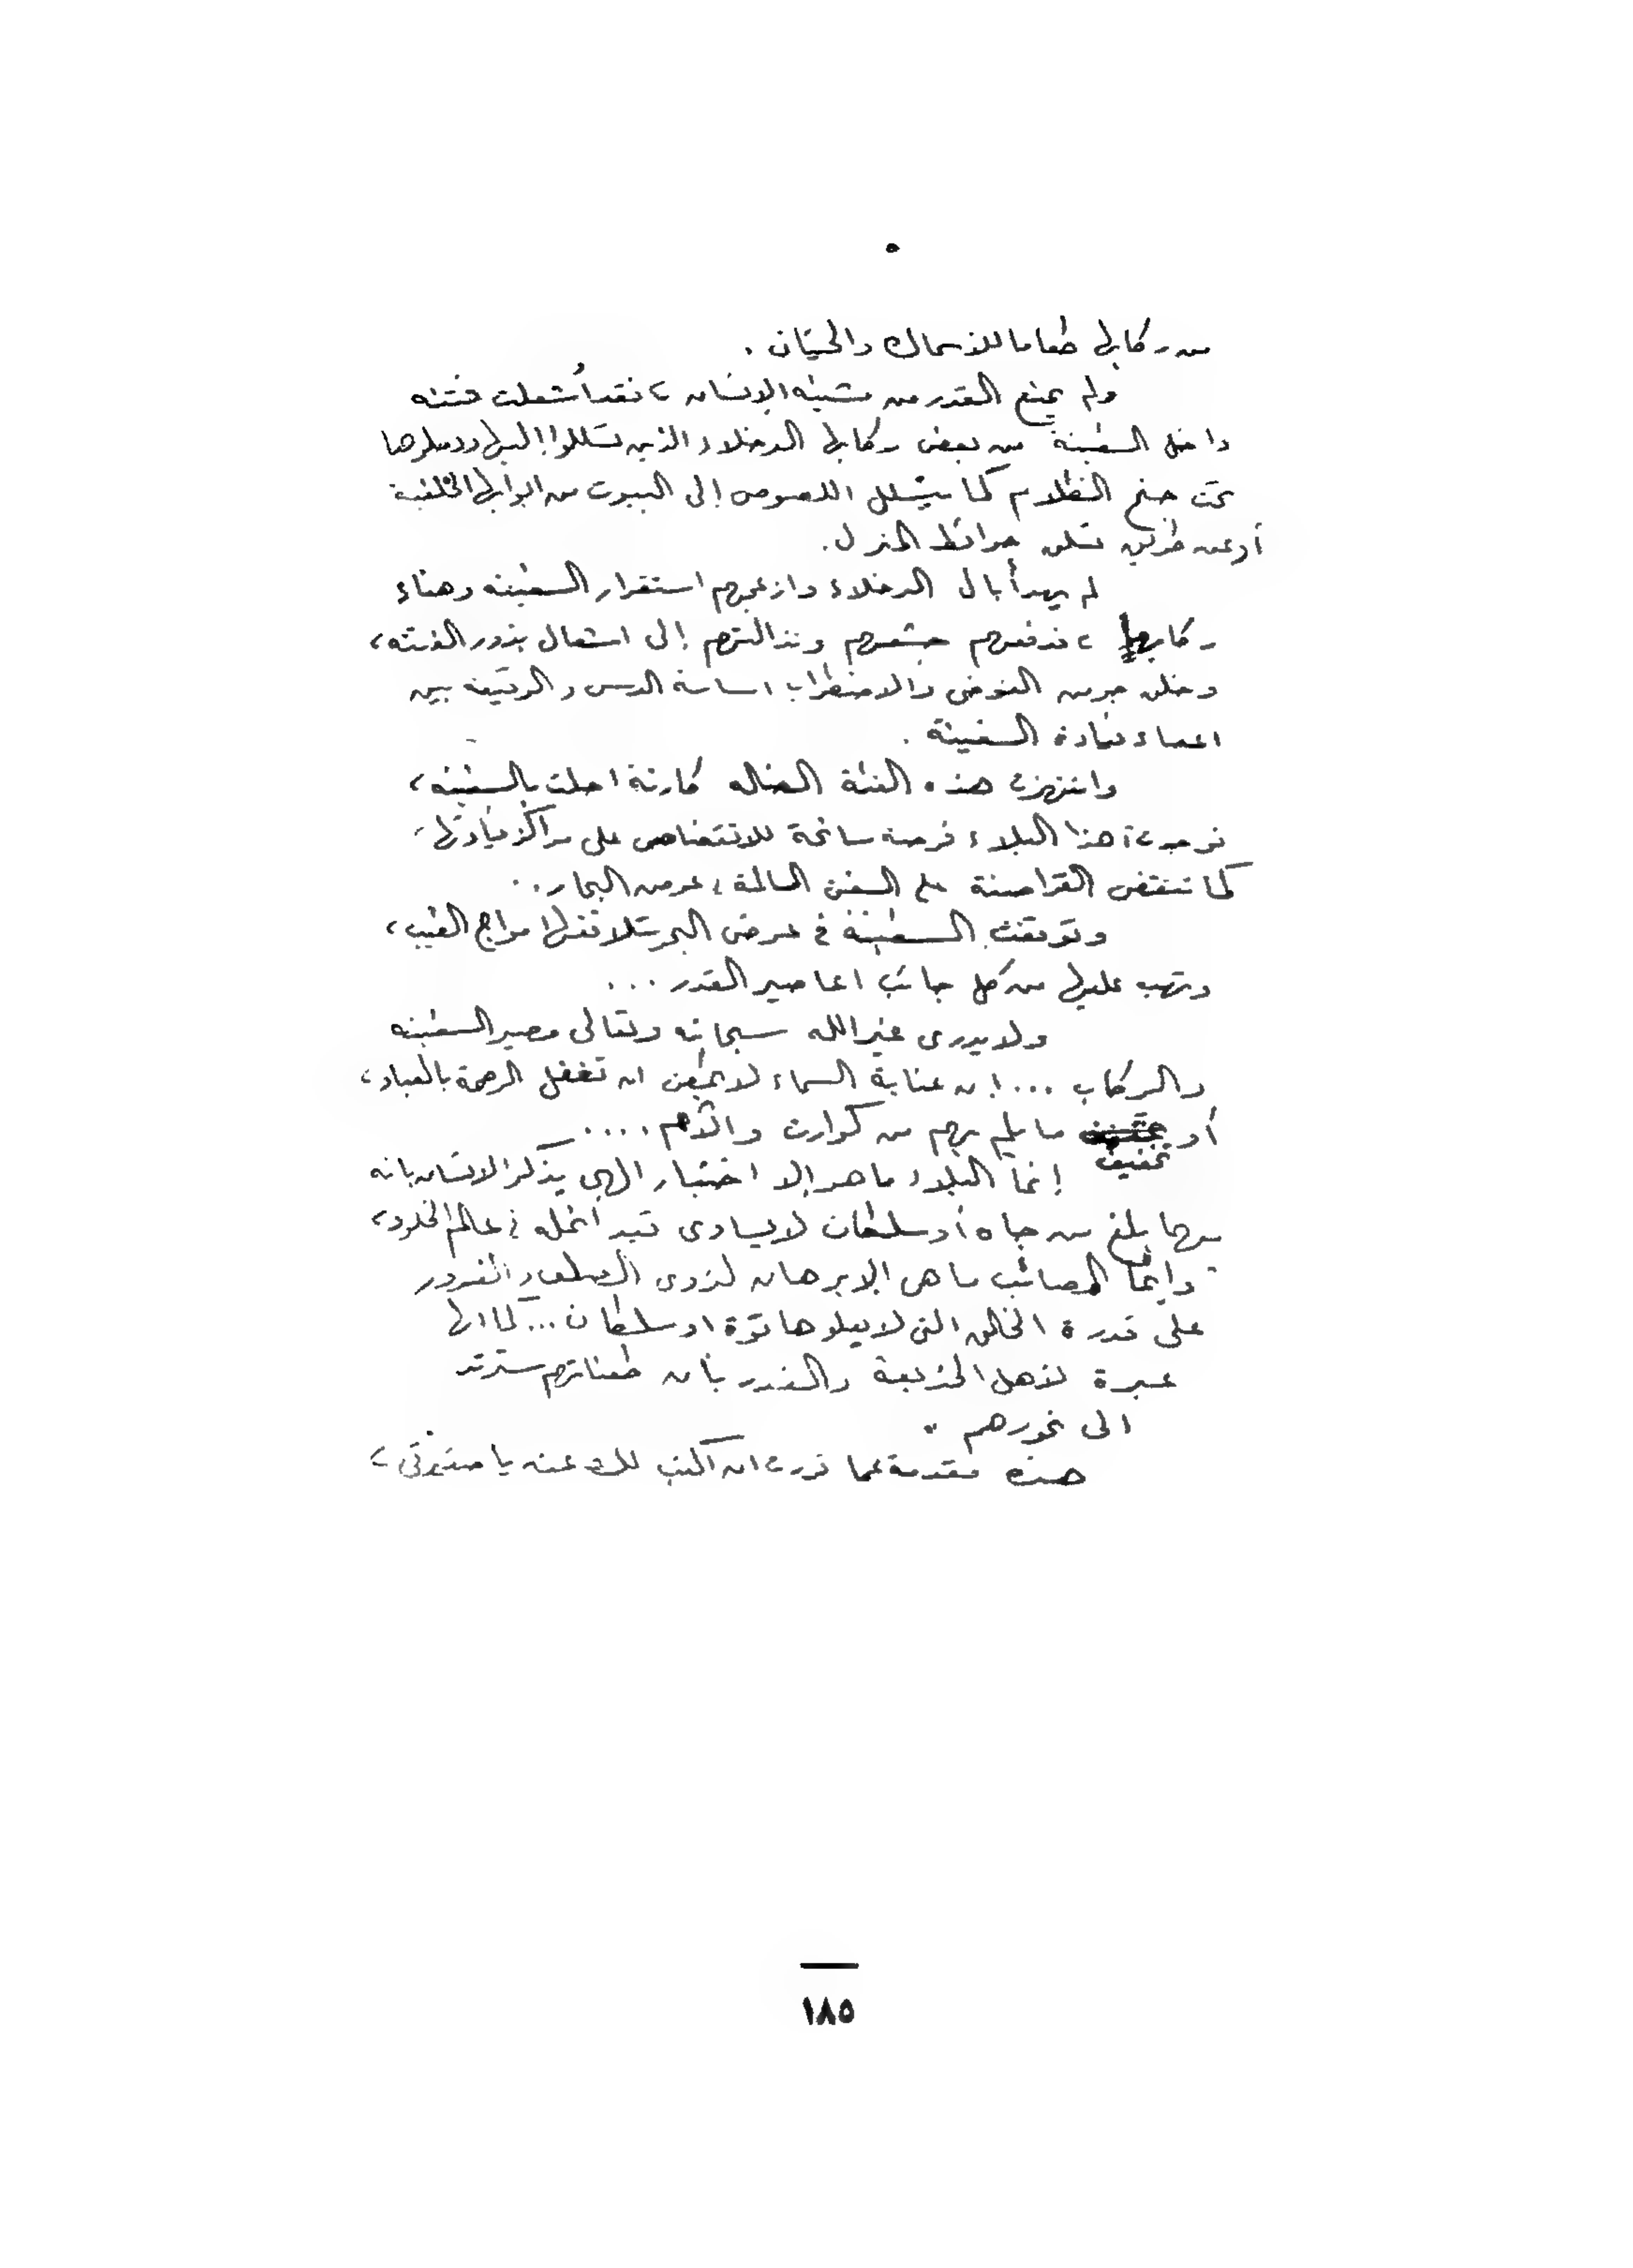 من ركابها طعاما للأسماك والحيتان .
ولم يمنع القدر من مشيئة الإنسان ، فقد أُشعلت فتنه
داخل السفينة من بعض ركابها الدخلاء الذين تسللوا إليها ودخلوها
تحت جنح الظلام كما يتسلل اللصوص إلى البيوت من ابوابها الخلفية
أو عن طريق تسلق حوائط المنزل .
لم يهدأ بال الدخلاء وازعجهم استقرار السفينه وهناء
ركابها ، فدفعهم جشعهم ونذالتهم إلى اشعال بذور الفتنه ،
وخلق جو من الفوضى والاضطراب اساسه الدس والوقيعه بين
اعضاء قيادة السفينة .
وانتهزت هذه الفئة الضاله كارثة احلت بالسفينه ،
فوجدت هذا البلاء فرصه سانحة للانقضاض على مراكز قيادتها
كما تنقض القراصنة على السفن السالمة في عرض البحار ..
وتوقفت السفينة في عرض البحر تتلاقفها امواج الغيب ،
وتهب عليها من كل جانب اعاصير القدر ...
ولا يدرى غير الله سبحانه وتعالى مصير السفينه
والركاب ... إن عناية السماء لا يمكن ان تغفل الرحمة بالعباد ،
أو تخفيف ما يلم بهم من كوارث وآلام ....
إنما البلاء ما هو إلا اختبار الهى يذكر الانسان بانه
مهما بلغ من جاه أو سلطان لا يساوى قيد أنمله في عالم الخلود ،
وإنما المصائب ما هى إلا برهان لذوى الصلف والغرور
على قدرة الخالق التى لا يعلوها قوة او سلطان ... كما انها
عبرة لأهل الخديعة والغدر بأن طعناتهم سترتد
الى نحورهم "
هذه مقدمة عما قررت ان اكتب لك عنه يا صديقتى ،
١٨٥